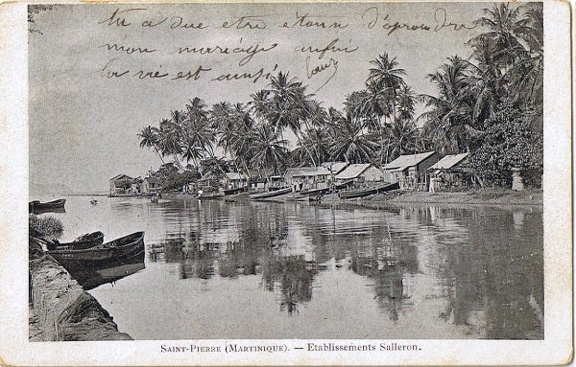 tu a due etre étonn d'aprendre
mon mariage enfin
la vie est ainsi
SAINT-PIERRE (MARTINIQUE). — Etablissements Salleron.